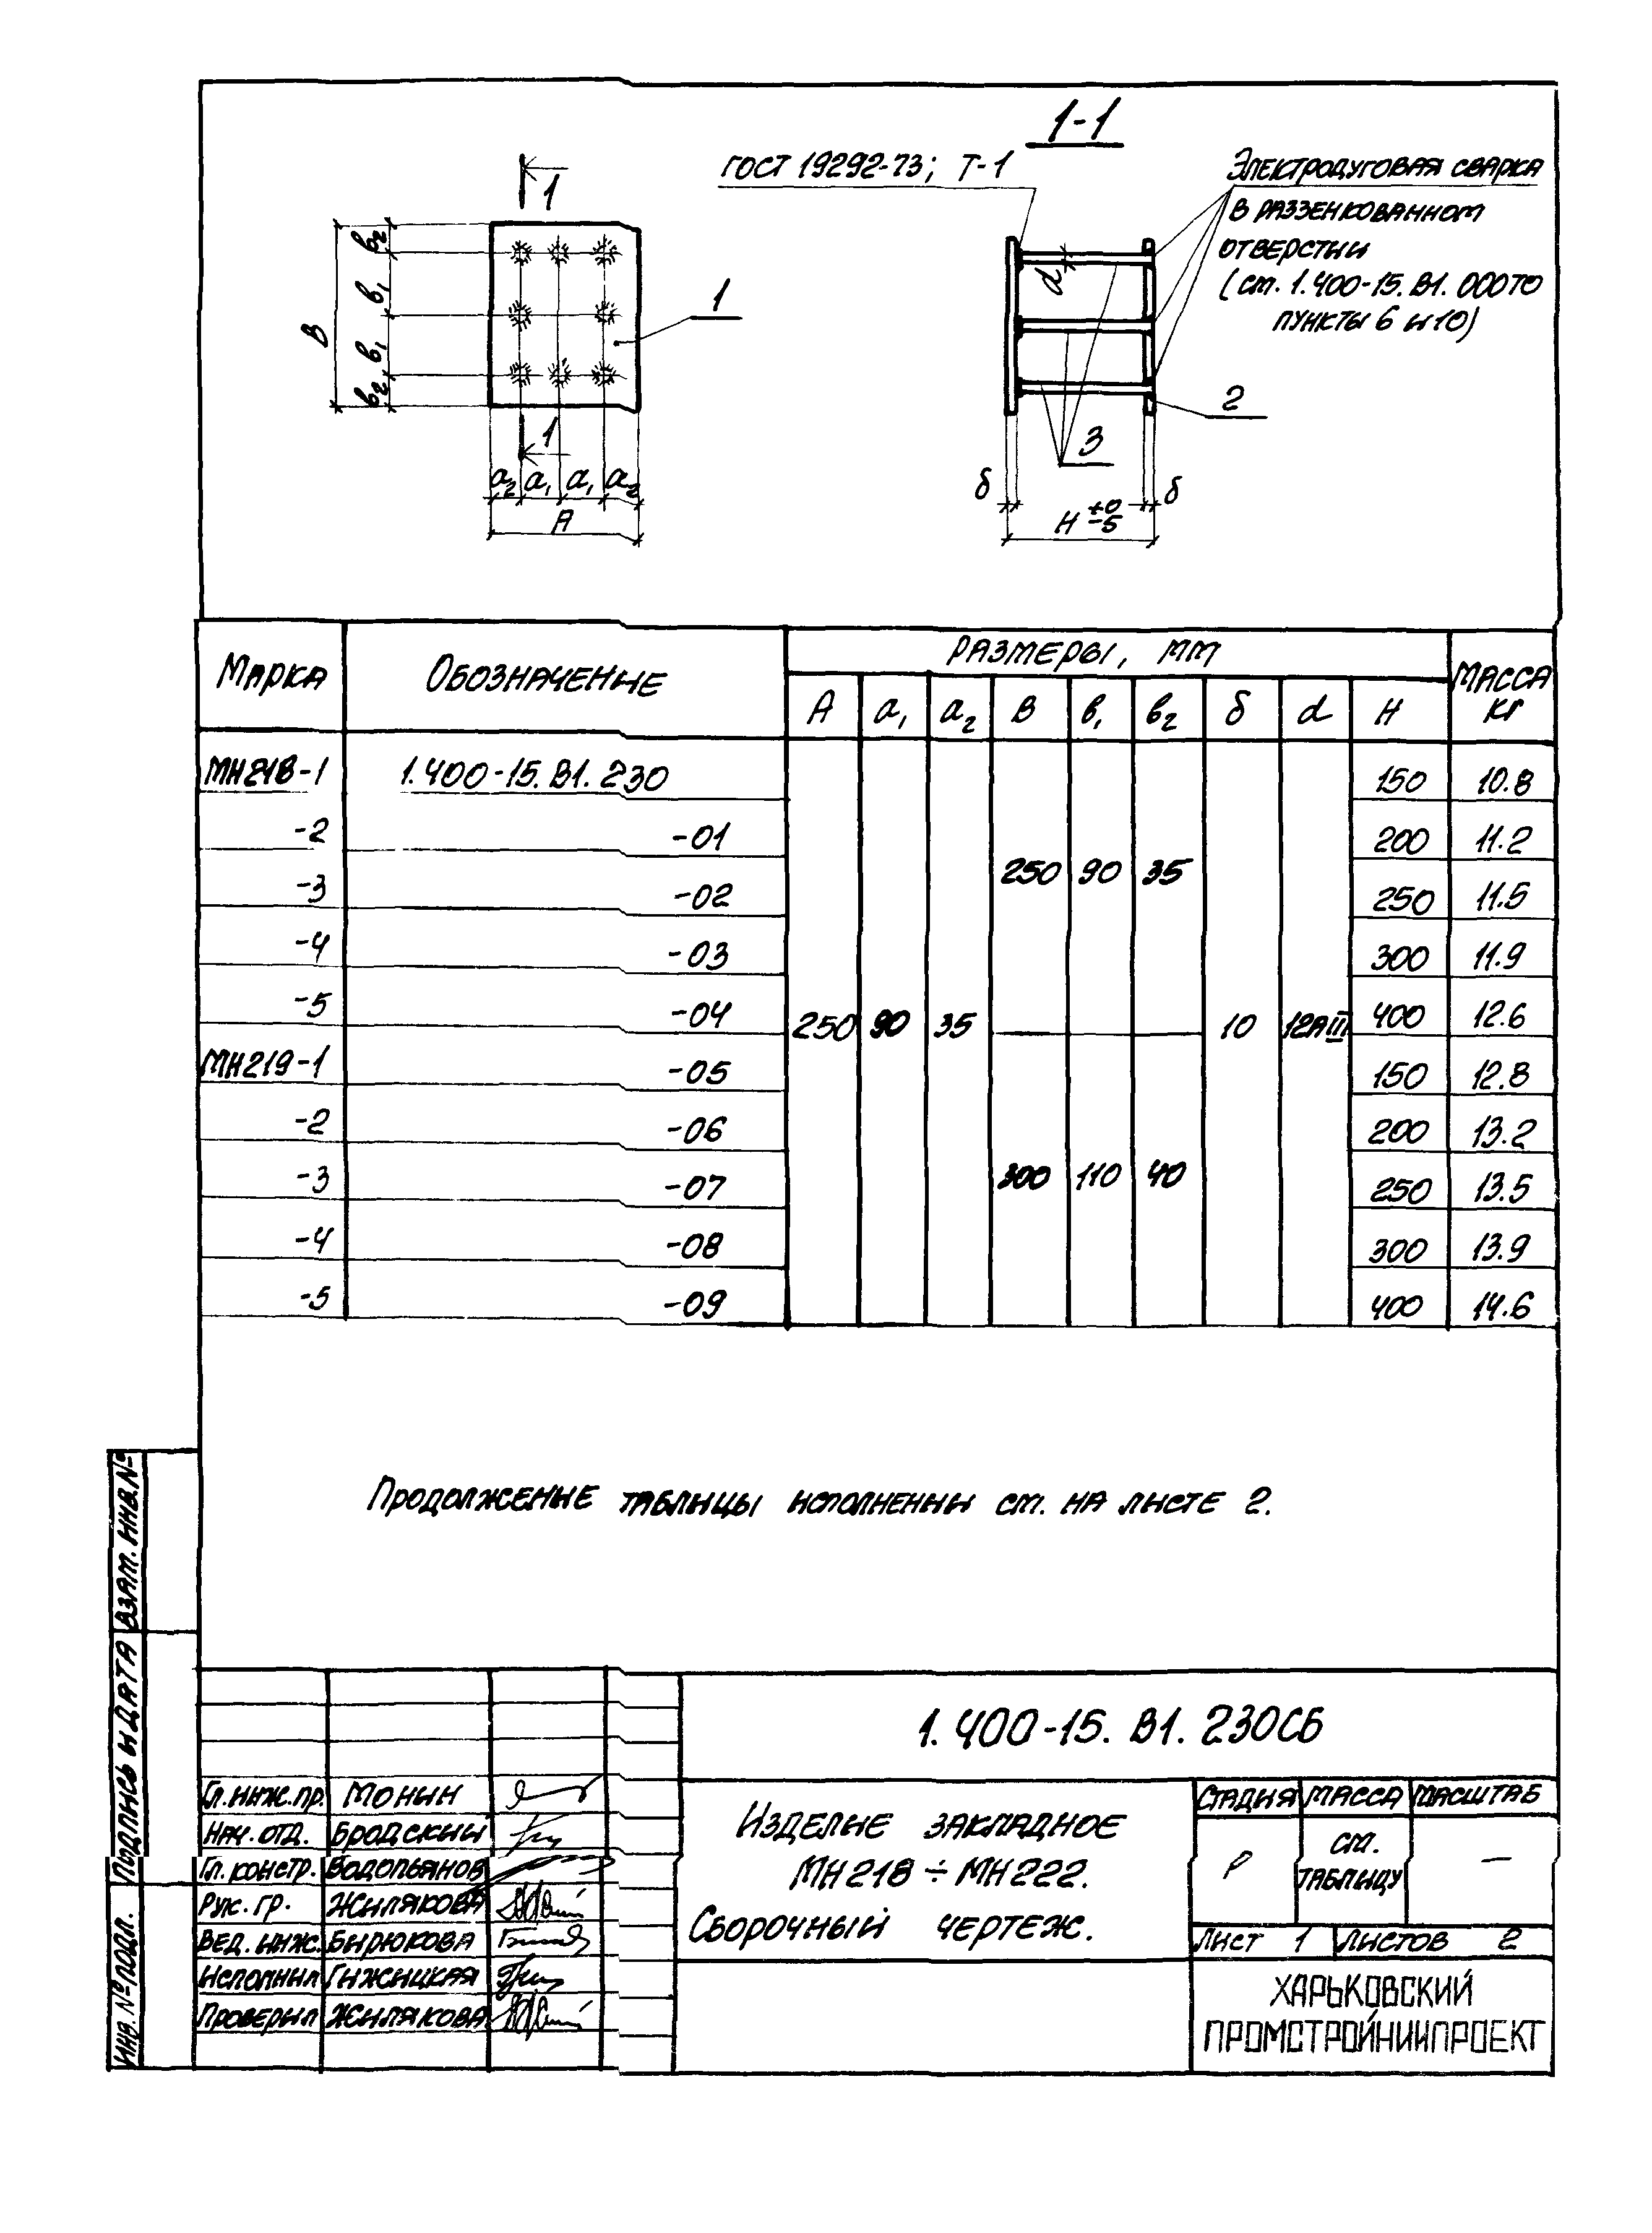 1-1
ГОСТ 19292-73; Т-1
Электродуговая сварка
в раззенкованном
отверстии
(см. 1.400-15.В1.000ТО
пункты 6 и 10)
1
1
в2
в1
в1
в2
В
1
d
2
3
а2 а1 а1 а2
А
δ
δ
Н +0 -5
Марка Обозначение Размеры, мм Масса кг
А а1 а2 В в1 в2 δ d Н
МН218-1 1.400-15.В1.230 150 10.8
-2 -01 200 11.2
250 90 35
-3 -02 250 11.5
-4 -03 300 11.9
-5 -04 400 12.6
250 90 35 10 12АIII
МН219-1 -05 150 12.8
-2 -06 200 13.2
300 110 40
-3 -07 250 13.5
-4 -08 300 13.9
-5 -09 400 14.6
Продолжение таблицы исполнении см. на листе 2.
Взам. инв. №
Подпись и дата
Инв. № подл.
1.400-15.В1.230СБ
Гл. инж. пр. Монин
Нач. отд. Бродский
Гл. констр. Водопьянов
Рук. гр. Жилякова
Вед. инж. Бирюкова
Исполнил Гижицкая
Проверил Жилякова
Изделие закладное
МН218 ÷ МН222.
Сборочный чертеж.
Стадия Масса Масштаб
Р см. таблицу —
Лист 1 Листов 2
ХАРЬКОВСКИЙ
ПРОМСТРОЙНИИПРОЕКТ